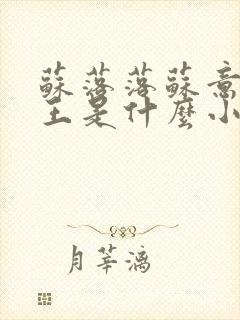 蘇落落蘇意
王是什麼小
月華漓